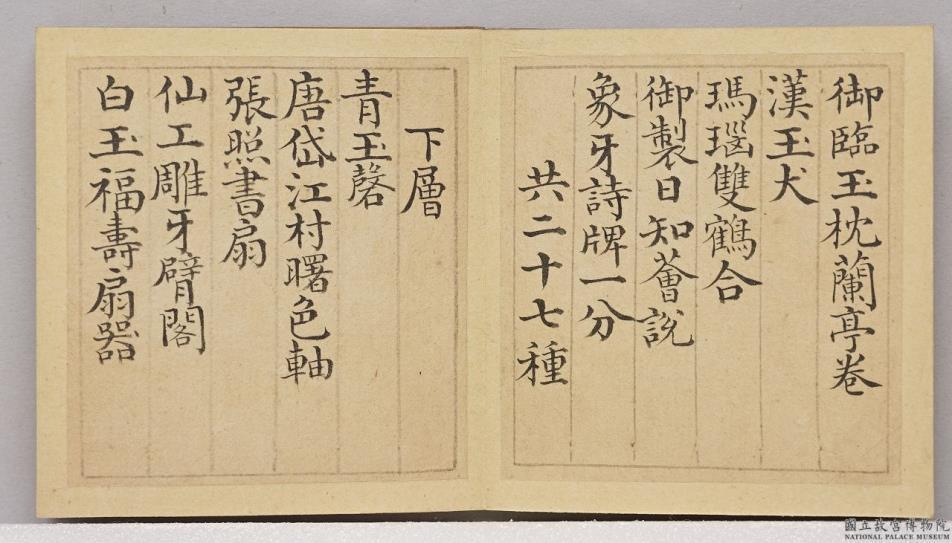 御臨玉枕蘭亭卷
漢玉犬
瑪瑙雙鶴合
御製日知薈說
象牙詩牌一分
共二十七種
下層
青玉磬
唐岱江村曙色軸
張照書扇
仙工雕牙臂閣
白玉福壽扇器
國立故宮博物院
NATIONAL PALACE MUSEUM